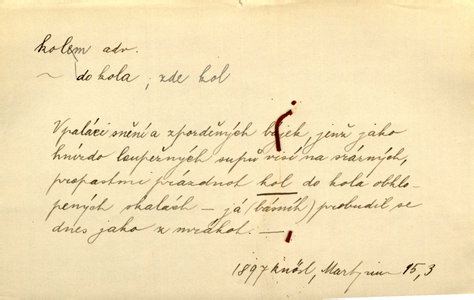 kolem adv.
~ do kola ; zde kol
V paláci snění a zporděných bájek, jenž jako
hnízdo loupežných supů visí na srázných,
propastmi prázdnot kol do kola obklo-
pených skalách – já (básník) probudil se
dnes jako z mrákot. –
1897 Knösl, Martyrium 15,3